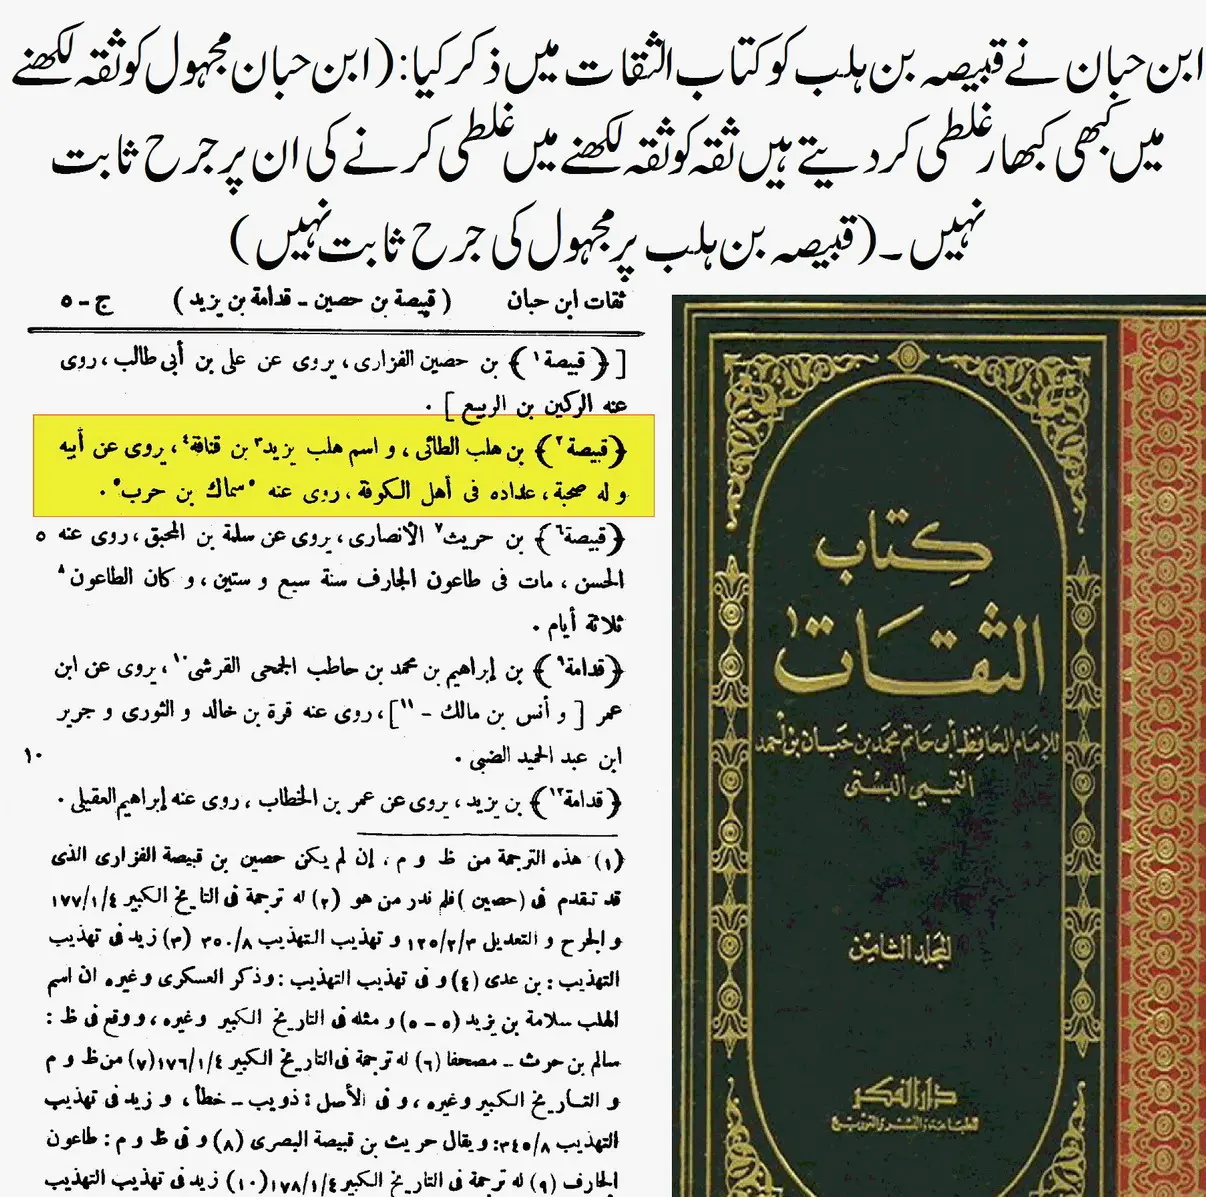 ابن حبان نے قبیصہ بن ہلب کو کتاب الثقات میں ذکر کیا: (ابن حبان مجہول کو ثقہ لکھنے
میں کبھی کبھار غلطی کر دیتے ہیں ثقہ کو ثقہ لکھنے میں غلطی کرنے کی ان پر جرح ثابت
نہیں۔ (قبیصہ بن ہلب پر مجہول کی جرح ثابت نہیں)
ثقات ابن حبان (قبيصة بن حصين - قدامة بن يزيد) ج - ٥
[﴿قبيصة١﴾ بن حصين الفزارى، يروى عن على بن أبى طالب، روى
عنه الركين بن الربيع].
﴿قبيصة٢﴾ بن هلب الطائى، و اسم هلب يزيد٣ بن قنافة٤، يروى عن أبيه
و له صحبة، عداده فى أهل الكوفة، روى عنه ٥سماك بن حرب٥.
﴿قبيصة٦﴾ بن حريث٧ الأنصارى، يروى عن سلمة بن المحبق، روى عنه ٥
الحسن، مات فى طاعون الجارف سنة سبع و ستين، و كان الطاعون٨
ثلاثة أيام.
﴿قدامة٩﴾ بن إبراهيم بن محمد بن حاطب الجمحى القرشى١٠، يروى عن ابن
عمر [و أنس بن مالك - ١١]، روى عنه قرة بن خالد و الثورى و جرير
ابن عبد الحميد الضبى. ١٠
﴿قدامة١٢﴾ بن يزيد، يروى عن عمر بن الخطاب، روى عنه إبراهيم العقيلى.
(١) هذه الترجمة من ظ و م، إن لم يكن حصين بن قبيصة الفزارى الذى
قد تقدم فى (حصين) فلم ندر من هو (٢) له ترجمة فى التاريخ الكبير ١٧٧/١/٤
و الجرح و التعديل ١٢٥/٢/٣ و تهذيب التهذيب ٣٥٠/٨ (٣) زيد فى تهذيب
التهذيب: بن عدى (٤) و فى تهذيب التهذيب: وذكر العسكرى وغيره ان اسم
الهلب سلامة بن يزيد (٥-٥) و مثله فى التاريخ الكبير وغيره، و وقع فى ظ:
سالم بن حوث - مصحفا (٦) له ترجمة فى التاريخ الكبير ١٧٦/١/٤ (٧) من ظ و م
و التاريخ الكبير وغيره، و فى الأصل: ذويب - خطأ، و زيد فى تهذيب
التهذيب ٣٤٥/٨: و يقال حريث بن قبيصة البصرى (٨) و فى ظ و م: طاعون
الجارف (٩) له ترجمة فى التاريخ الكبير ١٧٨/١/٤ (١٠) زيد فى تهذيب التهذيب
كتاب
الثقات
للإمام الحافظ أبي حاتم محمد بن حبان بن أحمد
التميمي البستي
المجلد الثامن
دار الفكر
للطباعة والنشر والتوزيع